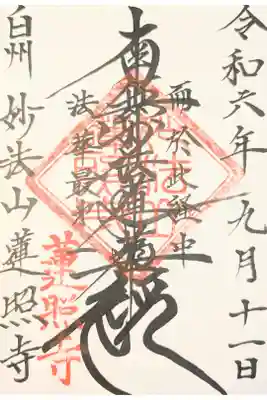 令和六年九月十一日
而於此経中
南無妙法蓮華経
法華最第一
白州 妙法山 蓮照寺
蓮照寺